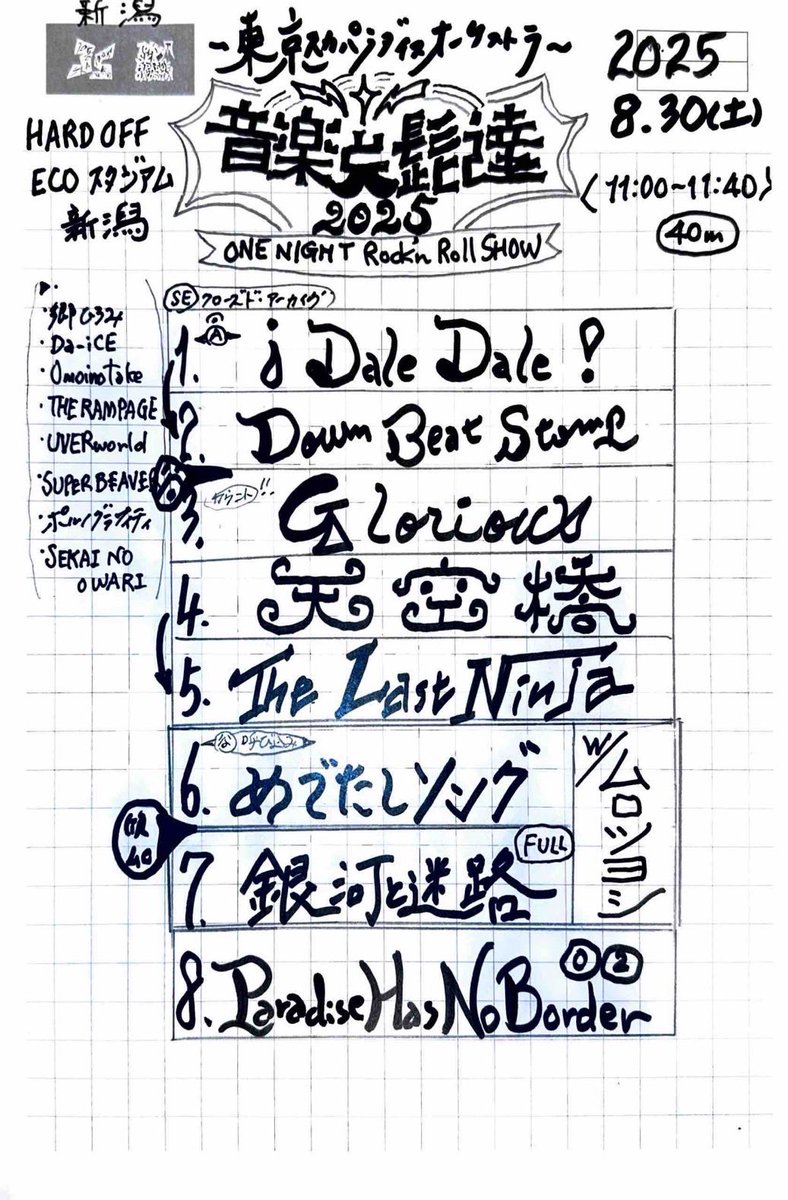 新潟
~東京スカパラダイスオーケストラ~
2025
8.30(土)
(11:00~11:40)
40m
HARD OFF
ECOスタジアム
新潟
音楽と髭達
2025
ONE NIGHT Rock'n Roll SHOW
・郷ひろみ
・Da-iCE
・Omoinotake
・THE RAMPAGE
・UVERworld
・SUPER BEAVER
・ポルノグラフィティ
・SEKAI NO
OWARI
SE クローズド・アーカイヴ
1. A ¡ Dale Dale !
2. Down Beat Stomp
3. カウント!! Glorious
4. 天空橋
5. The Last Ninja
6. めでたしソング
7. 銀河と迷路 FULL
W/ムロツヨシ
8. Paradise Has No Border 0 2